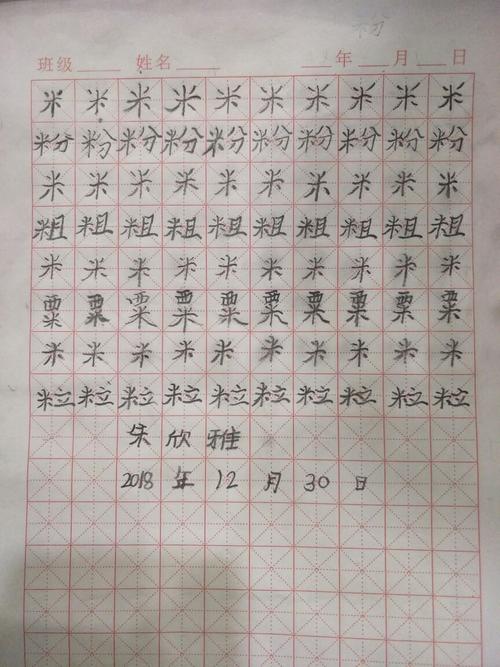 粉
班级 姓名 年 月 日
米 米 米 米 米 米 米 米 米 米
粉 粉 粉 粉 粉 粉 粉 粉 粉 粉
米 米 米 米 米 米 米 米 米 米
粗 粗 粗 粗 粗 粗 粗 粗 粗 粗
米 米 米 米 米 米 米 米 米 米
粟 粟 粟 粟 粟 粟 粟 粟 粟 粟
米 米 米 米 米 米 米 米 米 米
粒 粒 粒 粒 粒 粒 粒 粒 粒 粒
朱 欣 雅
2018 年 12 月 30 日